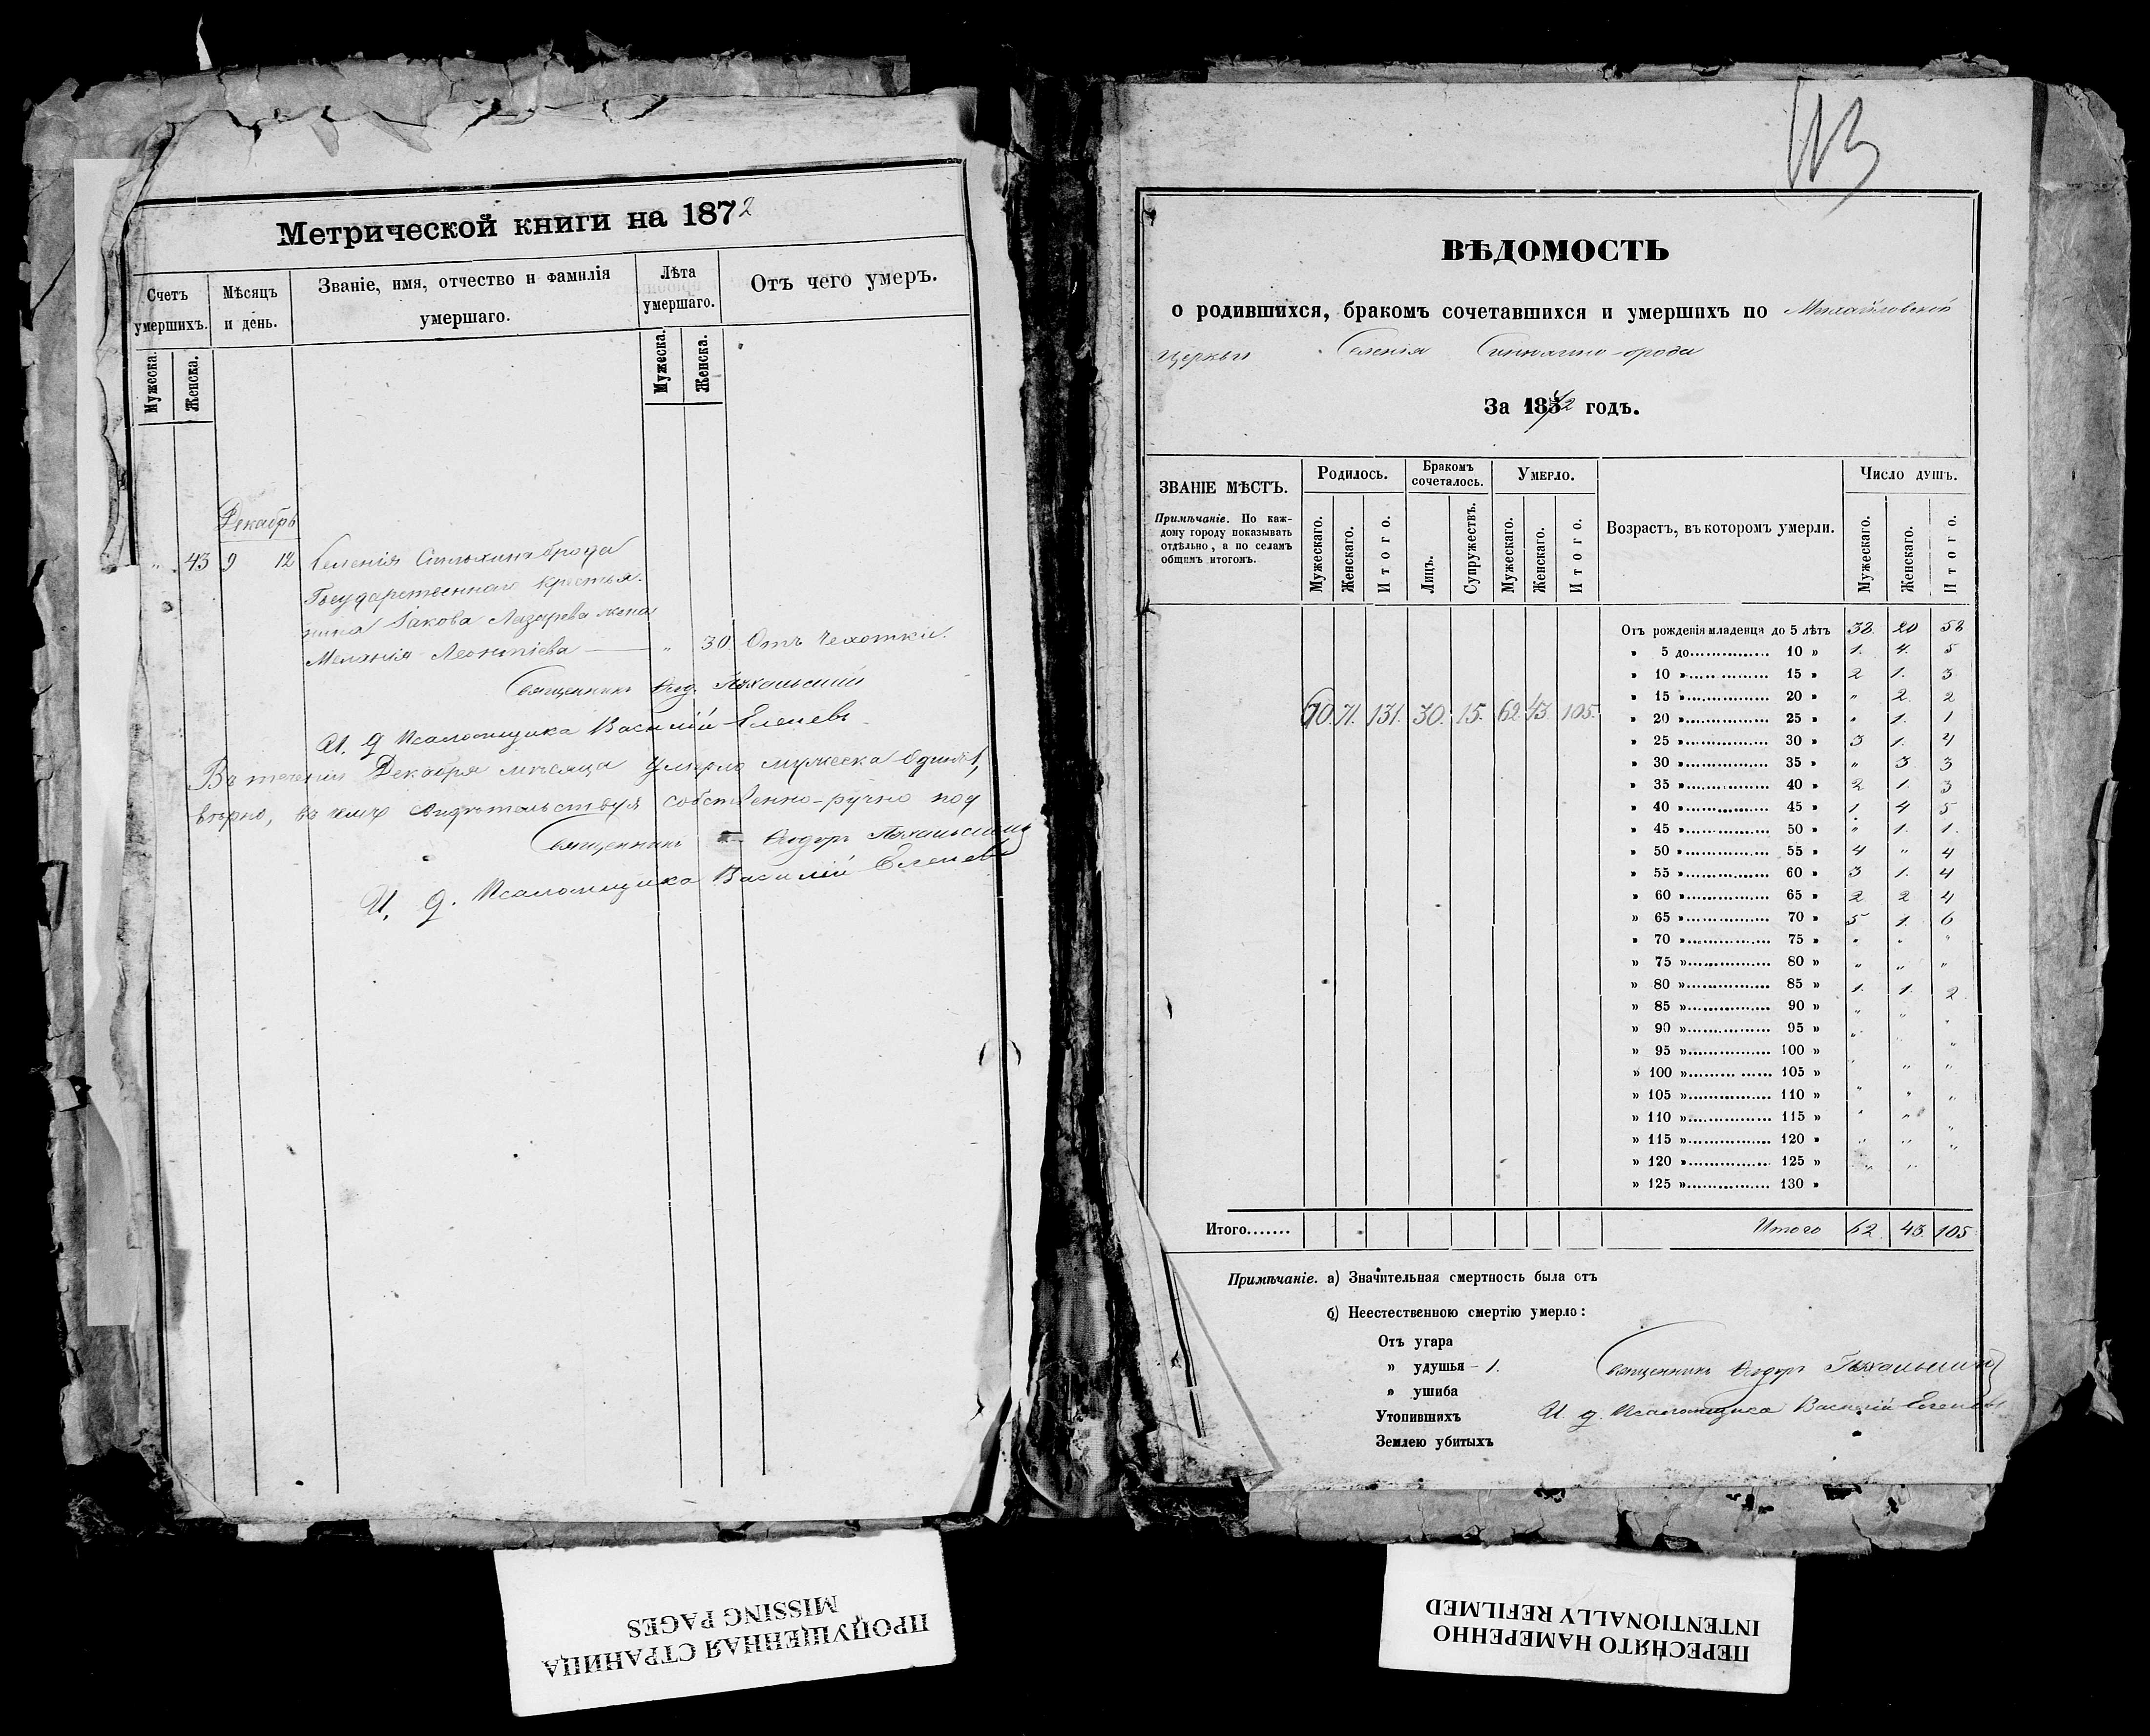 Метрической книги на 1872
Счетъ умершихъ.
Мѣсяцъ и день.
Званіе, имя, отчество и фамилія умершаго.
Лѣта умершаго.
Отъ чего умеръ.
Мужеска.
Женска.
Мужеска.
Женска.
Декабрь
" 43 9 12 Селенія
Государственнаго крестья-
нина Іакова Лазарева жена
Меланія Леонтіева — " 30. Отъ Чахотки.
Священникъ Ѳеод.
И. д. Псаломщика Василій
Въ теченіи Декабря мѣсяца умерло
вѣрно, въ чемъ свидѣтельствуя собственно-ручно под
Священникъ Ѳеодоръ
И. д. Псаломщика Василій
113
ВѢДОМОСТЬ
о родившихся, бракомъ сочетавшихся и умершихъ по Михайловской
Церкви Селенія
За 1872 годъ.
ЗВАНІЕ МѢСТЪ.
Примѣчаніе. По каж-
дому городу показывать
отдѣльно, а по селамъ
общимъ итогомъ.
Родилось.
Мужескаго.
Женскаго.
Итого.
Бракомъ сочеталось.
Лицъ.
Супружествъ.
Умерло.
Мужескаго.
Женскаго.
Итого.
Возрастъ, въ которомъ умерли.
Число душъ.
Мужескаго.
Женскаго.
Итого.
71. 131. 30. 15. 62 43 105.
Отъ рожденія младенца до 5 лѣтъ 38. 20 58
" 5 до 10 " 1. 4. 5
" 10 " 15 " 2 1. 3
" 15 " 20 " " 2. 2
" 20 " 25 " " 1. 1
" 25 " 30 " 3 1. 4
" 30 " 35 " " 3 3
" 35 " 40 " 2 1. 3
" 40 " 45 " 1. 4 5
" 45 " 50 " " 1. 1.
" 50 " 55 " 4 " 4
" 55 " 60 " 3 1. 4
" 60 " 65 " 2 2 4
" 65 " 70 " 5 1. 6
" 70 " 75 " " " "
" 75 " 80 " " " "
" 80 " 85 " 1. 1. 2
" 85 " 90 " " " "
" 90 " 95 "
" 95 " 100 "
" 100 " 105 "
" 105 " 110 "
" 110 " 115 "
" 115 " 120 "
" 120 " 125 "
" 125 " 130 "
Итого.......
Итого 62. 43. 105
Примѣчаніе. а) Значительная смертность была отъ
б) Неестественною смертію умерло:
Отъ угара
" удушья – 1.
" ушиба
Утопившихъ
Землею убитыхъ
Священникъ Ѳеодоръ
И. д. Псаломщика Василій
ПРОПУЩЕННАЯ СТРАНИЦА
MISSING PAGES
ПЕРЕСНЯТО НАМЕРЕННО
INTENTIONALLY REFILMED